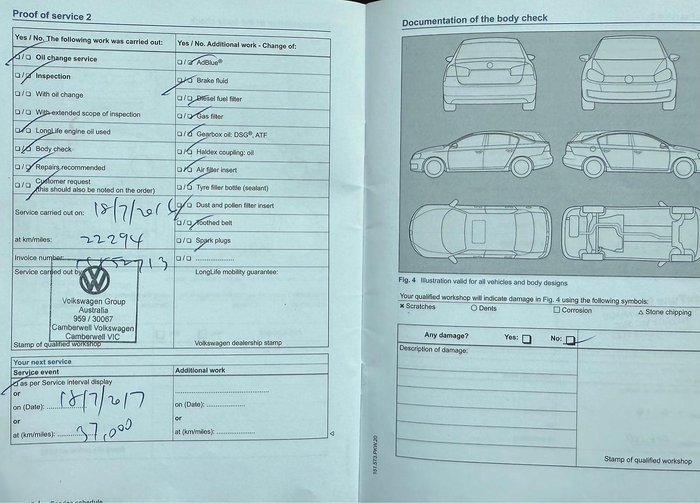 Proof of service 2
Yes / No. The following work was carried out:
☐/☐ Oil change service
☐/☐ Inspection
☐/☐ With oil change
☐/☐ With extended scope of inspection
☐/☐ LongLife engine oil used
☐/☐ Body check
☐/☐ Repairs recommended
☐/☐ Customer request
(this should also be noted on the order)
Service carried out on: 18/7/2016
at km/miles: 22294
Invoice number:
Service carried out by
Volkswagen Group
Australia
959 / 30067
Camberwell Volkswagen
Camberwell VIC
Stamp of qualified workshop
Yes / No. Additional work - Change of:
☐/☐ AdBlue®
☐/☐ Brake fluid
☐/☐ Diesel fuel filter
☐/☐ Gas filter
☐/☐ Gearbox oil: DSG®, ATF
☐/☐ Haldex coupling: oil
☐/☐ Air filter insert
☐/☐ Tyre filler bottle (sealant)
☐/☐ Dust and pollen filter insert
☐/☐ Toothed belt
☐/☐ Spark plugs
☐/☐ ....................
LongLife mobility guarantee:
Volkswagen dealership stamp
Your next service
Service event
☐ as per Service interval display
or
on (Date): 18/7/2017
or
at (km/miles): 37,000
Additional work
on (Date): ....................
or
at (km/miles): ....................
Documentation of the body check
Fig. 4 Illustration valid for all vehicles and body designs
Your qualified workshop will indicate damage in Fig. 4 using the following symbols:
× Scratches ○ Dents □ Corrosion △ Stone chipping
Any damage? Yes: ☐ No: ☐
Description of damage:
Stamp of qualified workshop
151.5T3.PKW.20